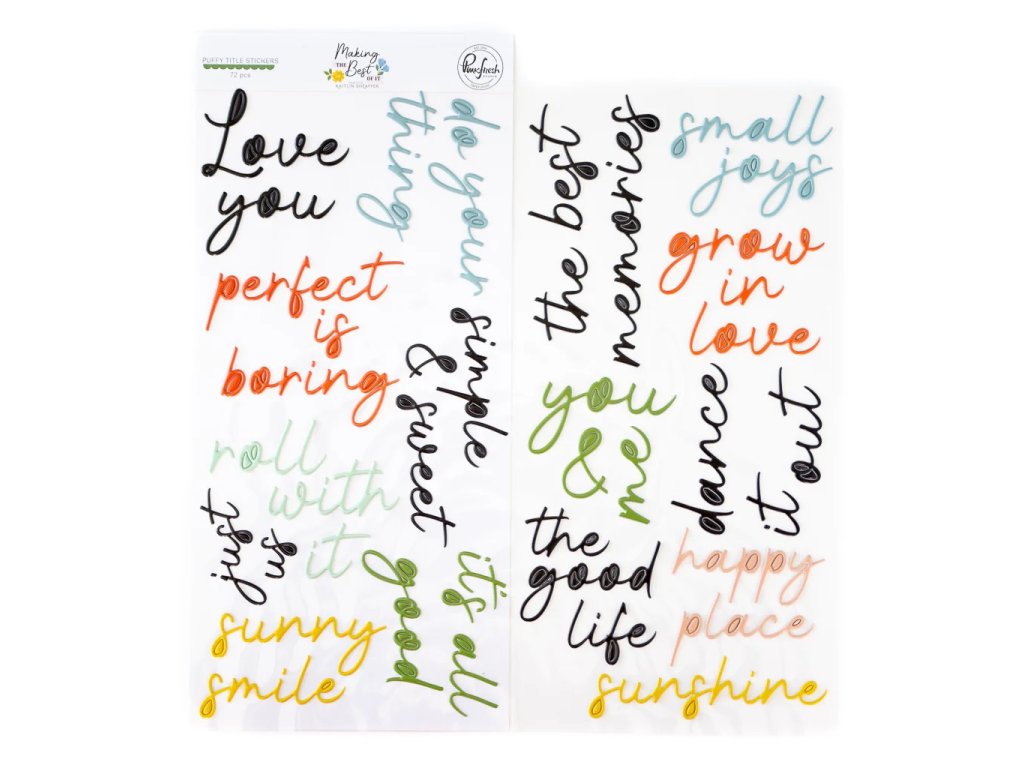 PUFFY TITLE STICKERS
72 pcs
Making
THE Best
OF IT
KAITLIN SHEAFFER
Pinkfresh
Love
you
do your
thing
perfect
is
boring
simple
& sweet
roll
with
it
just
us
it's all
good
sunny
smile
the best
memories
small
joys
grow
in
love
you
& me
dance
it out
the
good
life
happy
place
sunshine